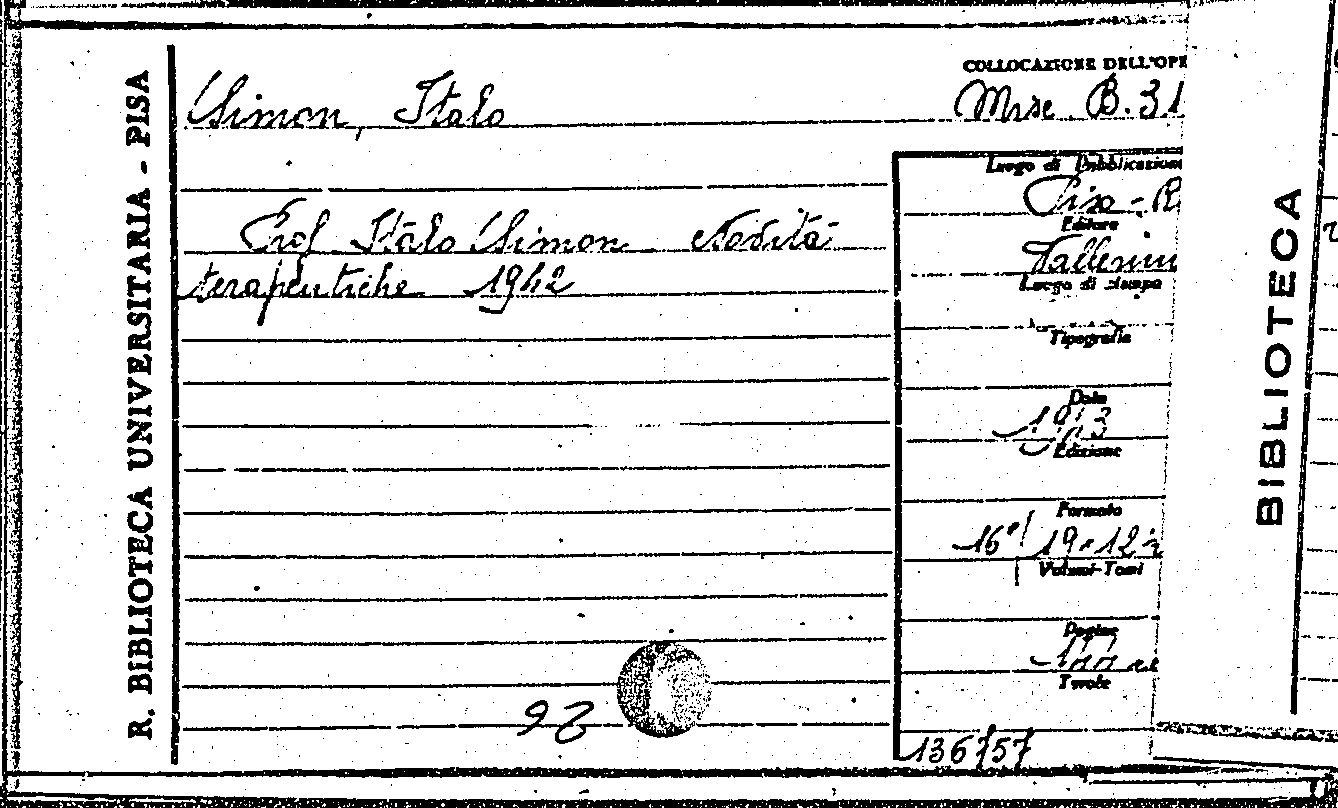 R. BIBLIOTECA UNIVERSITARIA - PISA
Simon, Italo
COLLOCAZIONE DELL'OPE
Misc. B. 31
Prof Italo Simon Novità
terapeutiche 1942
Luogo di Pubblicazione
Pisa - R
Editore
Vallerini
Luogo di stampa
Tipografia
Data
1943
Edizione
Formato
16° 19 × 12
Volumi-Tomi
Pagine
Tavole
26
136757
BIBLIOTECA